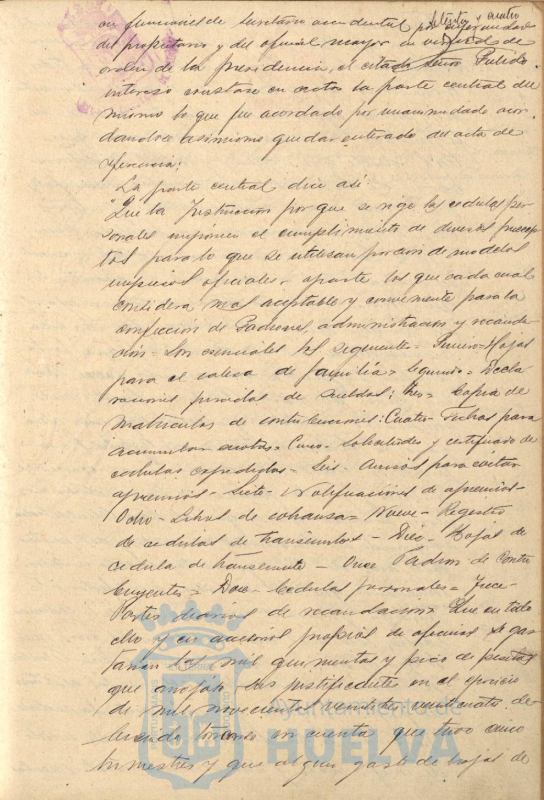 setenta y cuatro
en funciones de Secretario accidental por enfermedad
del propietario y del oficial mayor en
orden de la Presidencia, el citado señor Pulido
interesó constase en actas la parte central del
mismo lo que fue acordado por unanimidad acor-
dandose asimismo quedar enterado del acta de
referencia;
La parte central dice así:
"Que la Instruccion por que se rige las cedulas per-
sonales imponen el cumplimiento de diversos precep-
tos para lo que se utilizan porcion de modelos
impresos oficiales, aparte los que cada cual
considera mas aceptable y conveniente para la
confeccion de Padrones, administracion y recauda-
ción. Son esenciales los siguientes = Primero = Hojas
para el cabeza de familia = Segundo = Decla
raciones juradas de sueldos; Tres = Copia de
matriculas de contribuciones: Cuatro - Fichas para
acumular cuotas = Cinco - Solicitudes y certificado de
cedulas expedidas = Seis - Avisos para evitar
apremios - Siete - Notificaciones de apremios -
Ocho - Libros de cobranza = Nueve - Registro
de cedulas de transeuntes - Diez - Hojas de
cedula de transeunte - Once Padron de Contri
buyentes = Doce - Cedulas personales = Trece -
Partes diarios de recaudacion = Que en todo
ello y en accesorios propios de oficinas se gas
taron las mil quinientas y pico de pesetas
que arrojan los justificantes en el ejercicio
de mil novecientos veintiseis veintisiete de-
biendo tenerse en cuenta que tuvo cinco
trimestres y que algun gasto de hojas de
Ayuntamiento de
HUELVA